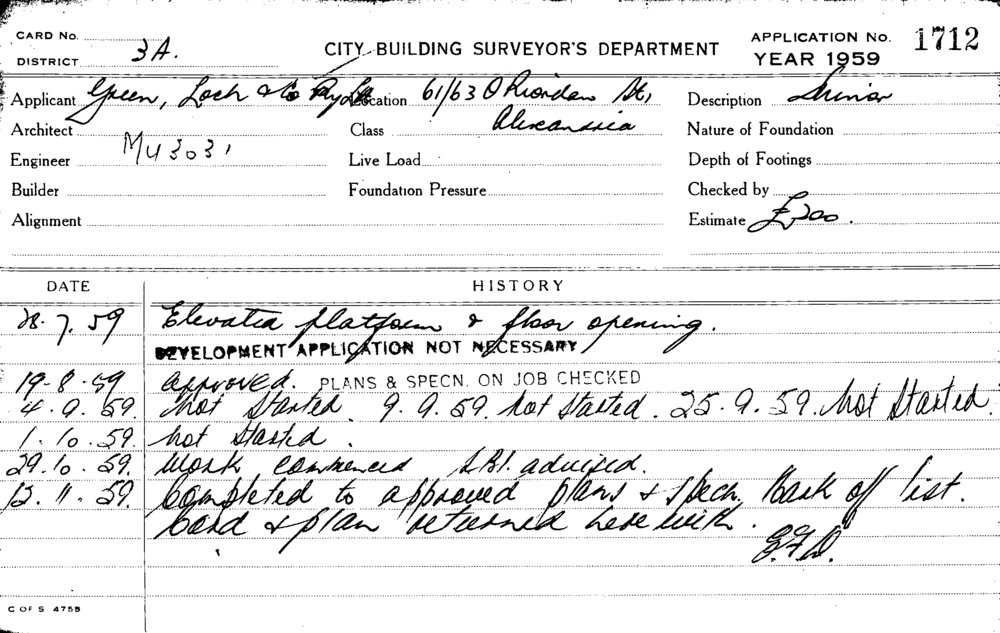 CARD No.
DISTRICT 3A.
CITY BUILDING SURVEYOR'S DEPARTMENT
APPLICATION No. 1712
YEAR 1959
Applicant Green, Loch & Co Pty Ltd Location 61/63 O'Riordan St, Description Minor
Architect Class Alexandria Nature of Foundation
Engineer M43031 Live Load Depth of Footings
Builder Foundation Pressure Checked by
Alignment Estimate £200.
DATE HISTORY
28.7.59 Elevated platform & floor opening.
DEVELOPMENT APPLICATION NOT NECESSARY
19-8-59 approved. PLANS & SPECN. ON JOB CHECKED
4.9.59. Not Started. 9.9.59. Not Started. 25.9.59. Not Started.
1.10.59. Not Started.
29.10.59. Work commenced advised.
13.11.59. Completed to approved plans & specn. Mark off list.
Card & plan returned herewith.
C OF S 4755